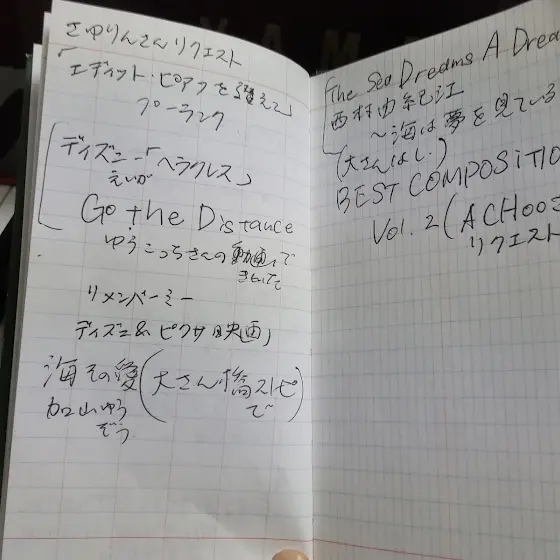 さゆりんさんリクエスト
「エディット・ピアフを讃えて」
プーランク
ディズニー「ヘラクレス」
えいが
Go the Distance
ゆうこっちさんの動画で
きいてて
リメンバーミー
ディズニー& ピクサー映画」
海 その愛(大さん橋ストピで)
加山ゆうぞう
The Sea Dreams A Drea
西村由紀江
~海は夢を見ている
(大さんばし.)
BEST COMPOSITIO
Vol. 2 (A CHOOS
リクエスト